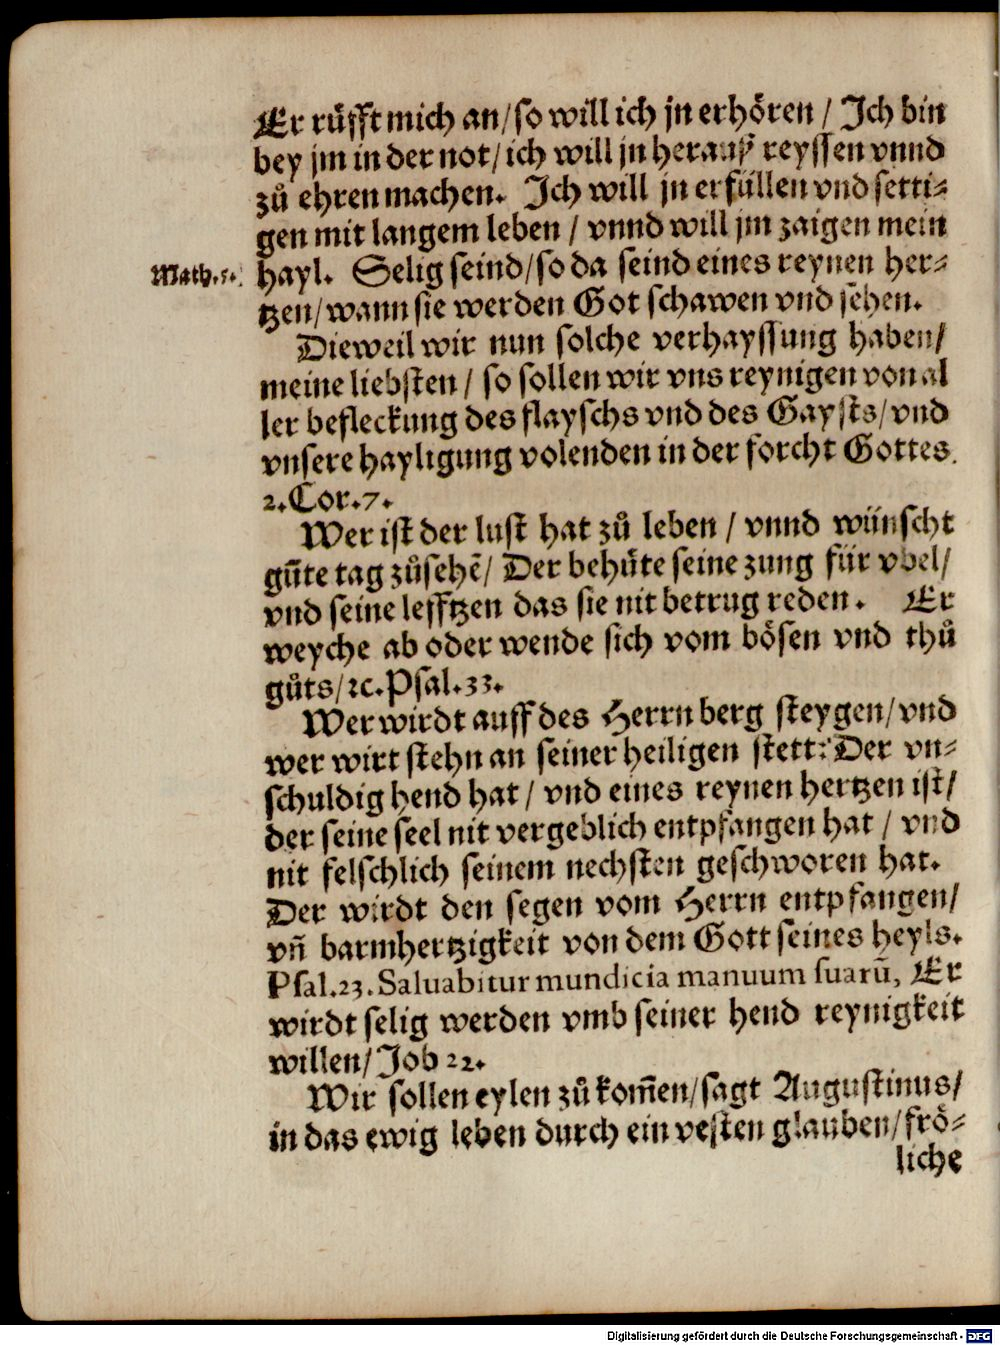 Er rüfft mich an/ so will ich jn erhören / Ich bin
bey jm in der not/ ich will jn herauß reyssen vnnd
zů ehren machen. Ich will jn erfüllen vnd setti-
gen mit langem leben / vnnd will jm zaigen mein
Math.5. hayl. Selig seind/ so da seind eines reynen her-
tzen/ wann sie werden Got schawen vnd sehen.
Dieweil wir nun solche verhayssung haben/
meine liebsten / so sollen wir vns reynigen von al
ler befleckung des flayschs vnd des Gaysts/ vnd
vnsere hayligung volenden in der forcht Gottes.
2. Cor. 7.
Wer ist der lust hat zů leben / vnnd wünscht
gůte tag zůsehē/ Der behüte seine zung für vbel/
vnd seine lefftzen das sie nit betrug reden. Er
weyche ab oder wende sich vom bösen vnd thů
gůts/ ꝛc. Psal. 33.
Wer wirdt auff des Herrn berg steygen/ vnd
wer wirt stehn an seiner heiligen stett? Der vn-
schuldig hend hat / vnd eines reynen hertzen ist/
der seine seel nit vergeblich entpfangen hat / vnd
nit felschlich seinem nechsten geschworen hat.
Der wirdt den segen vom Herrn entpfangen/
vñ barmhertzigkeit von dem Gott seines heyls.
Psal. 23. Saluabitur mundicia manuum suarū, Er
wirdt selig werden vmb seiner hend reynigkeit
willen/ Job 22.
Wir sollen eylen zů kom̄en/ sagt Augustinus/
in das ewig leben durch ein vesten glauben/ frö-
liche
Digitalisierung gefördert durch die Deutsche Forschungsgemeinschaft - DFG